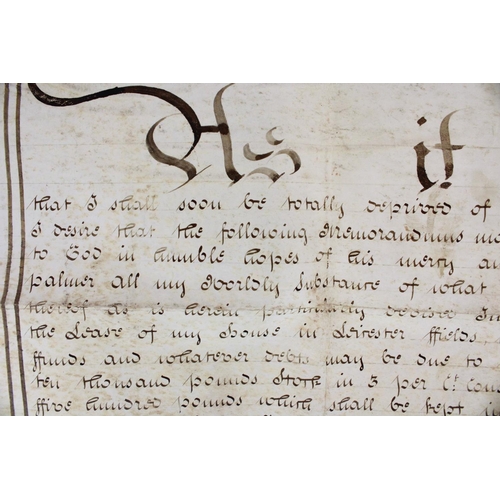 As it
that I shall soon be totally deprived of
I desire that the following Memorandums
to God in humble hopes of his mercy
palmer all my Worldly Substance of what
thereof as is herein particularly devised
the Lease of my House in Leicester ffields
ffunds and whatever debts may be due to
ten thousand pounds Stock in 3 per Ct.
ffive hundred pounds which shall be kept